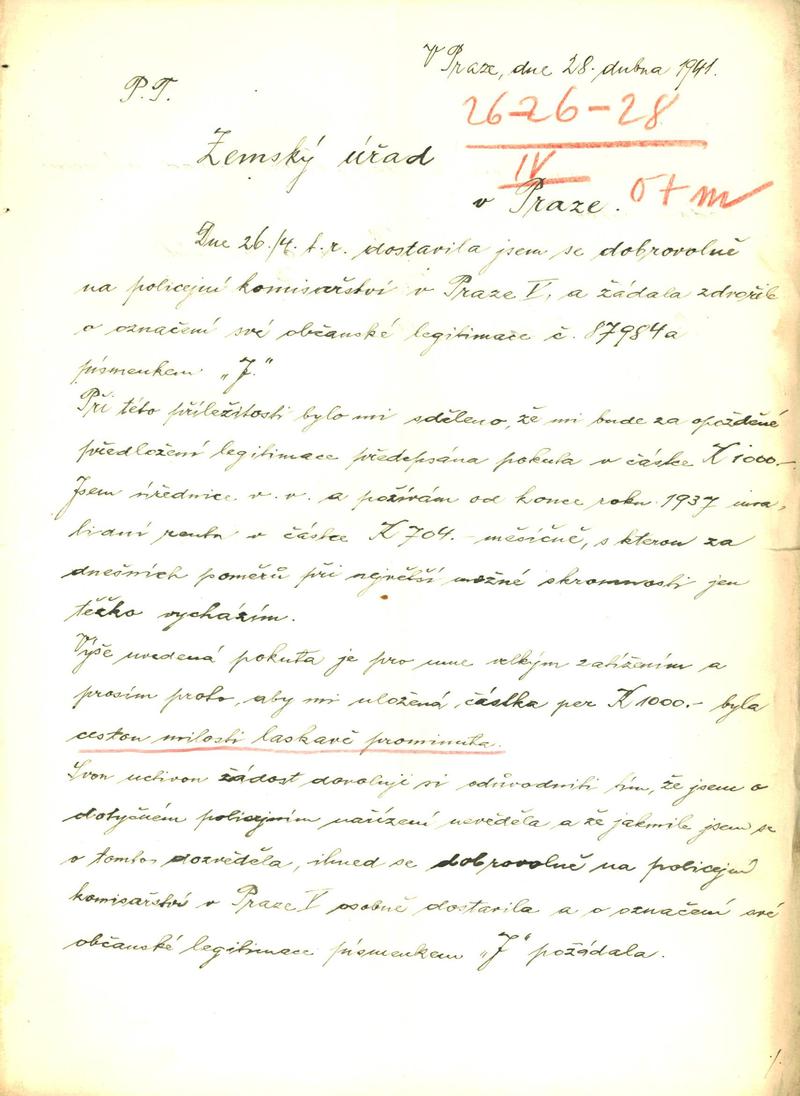 V Praze, dne 28. dubna 1941.
P. T.
26-26-28
Zemský úřad
IV
v Praze.
Dne 26./4. t. r. dostavila jsem se dobrovolně
na policejní komisařství v Praze V, a žádala zdvořile
o označení své občanské legitimace č. 87984a
písmenkem „J."
Při této příležitosti bylo mi sděleno, že mi bude za opožděné
předložení legitimace předepsána pokuta v částce K 1000.-
Jsem úřednice v. v. a požívám od konce roku 1937 inva-
lidní rentu v částce K 704.- měsíčně, s kterou za
dnešních poměrů při největší možné skromnosti jen
těžko vycházím.
Výše uvedená pokuta je pro mne velkým zatížením a
prosím proto, aby mi uložená částka per K 1000.- byla
cestou milosti laskavě prominuta.
Svou uctivou žádost dovoluji si odůvodniti tím, že jsem o
dotyčném policejním nařízení nevěděla a že jakmile jsem se
o tomto dozvěděla, ihned se dobrovolně na policejní
komisařství v Praze V osobně dostavila a o označení své
občanské legitimace písmenkem „J" požádala.
./.